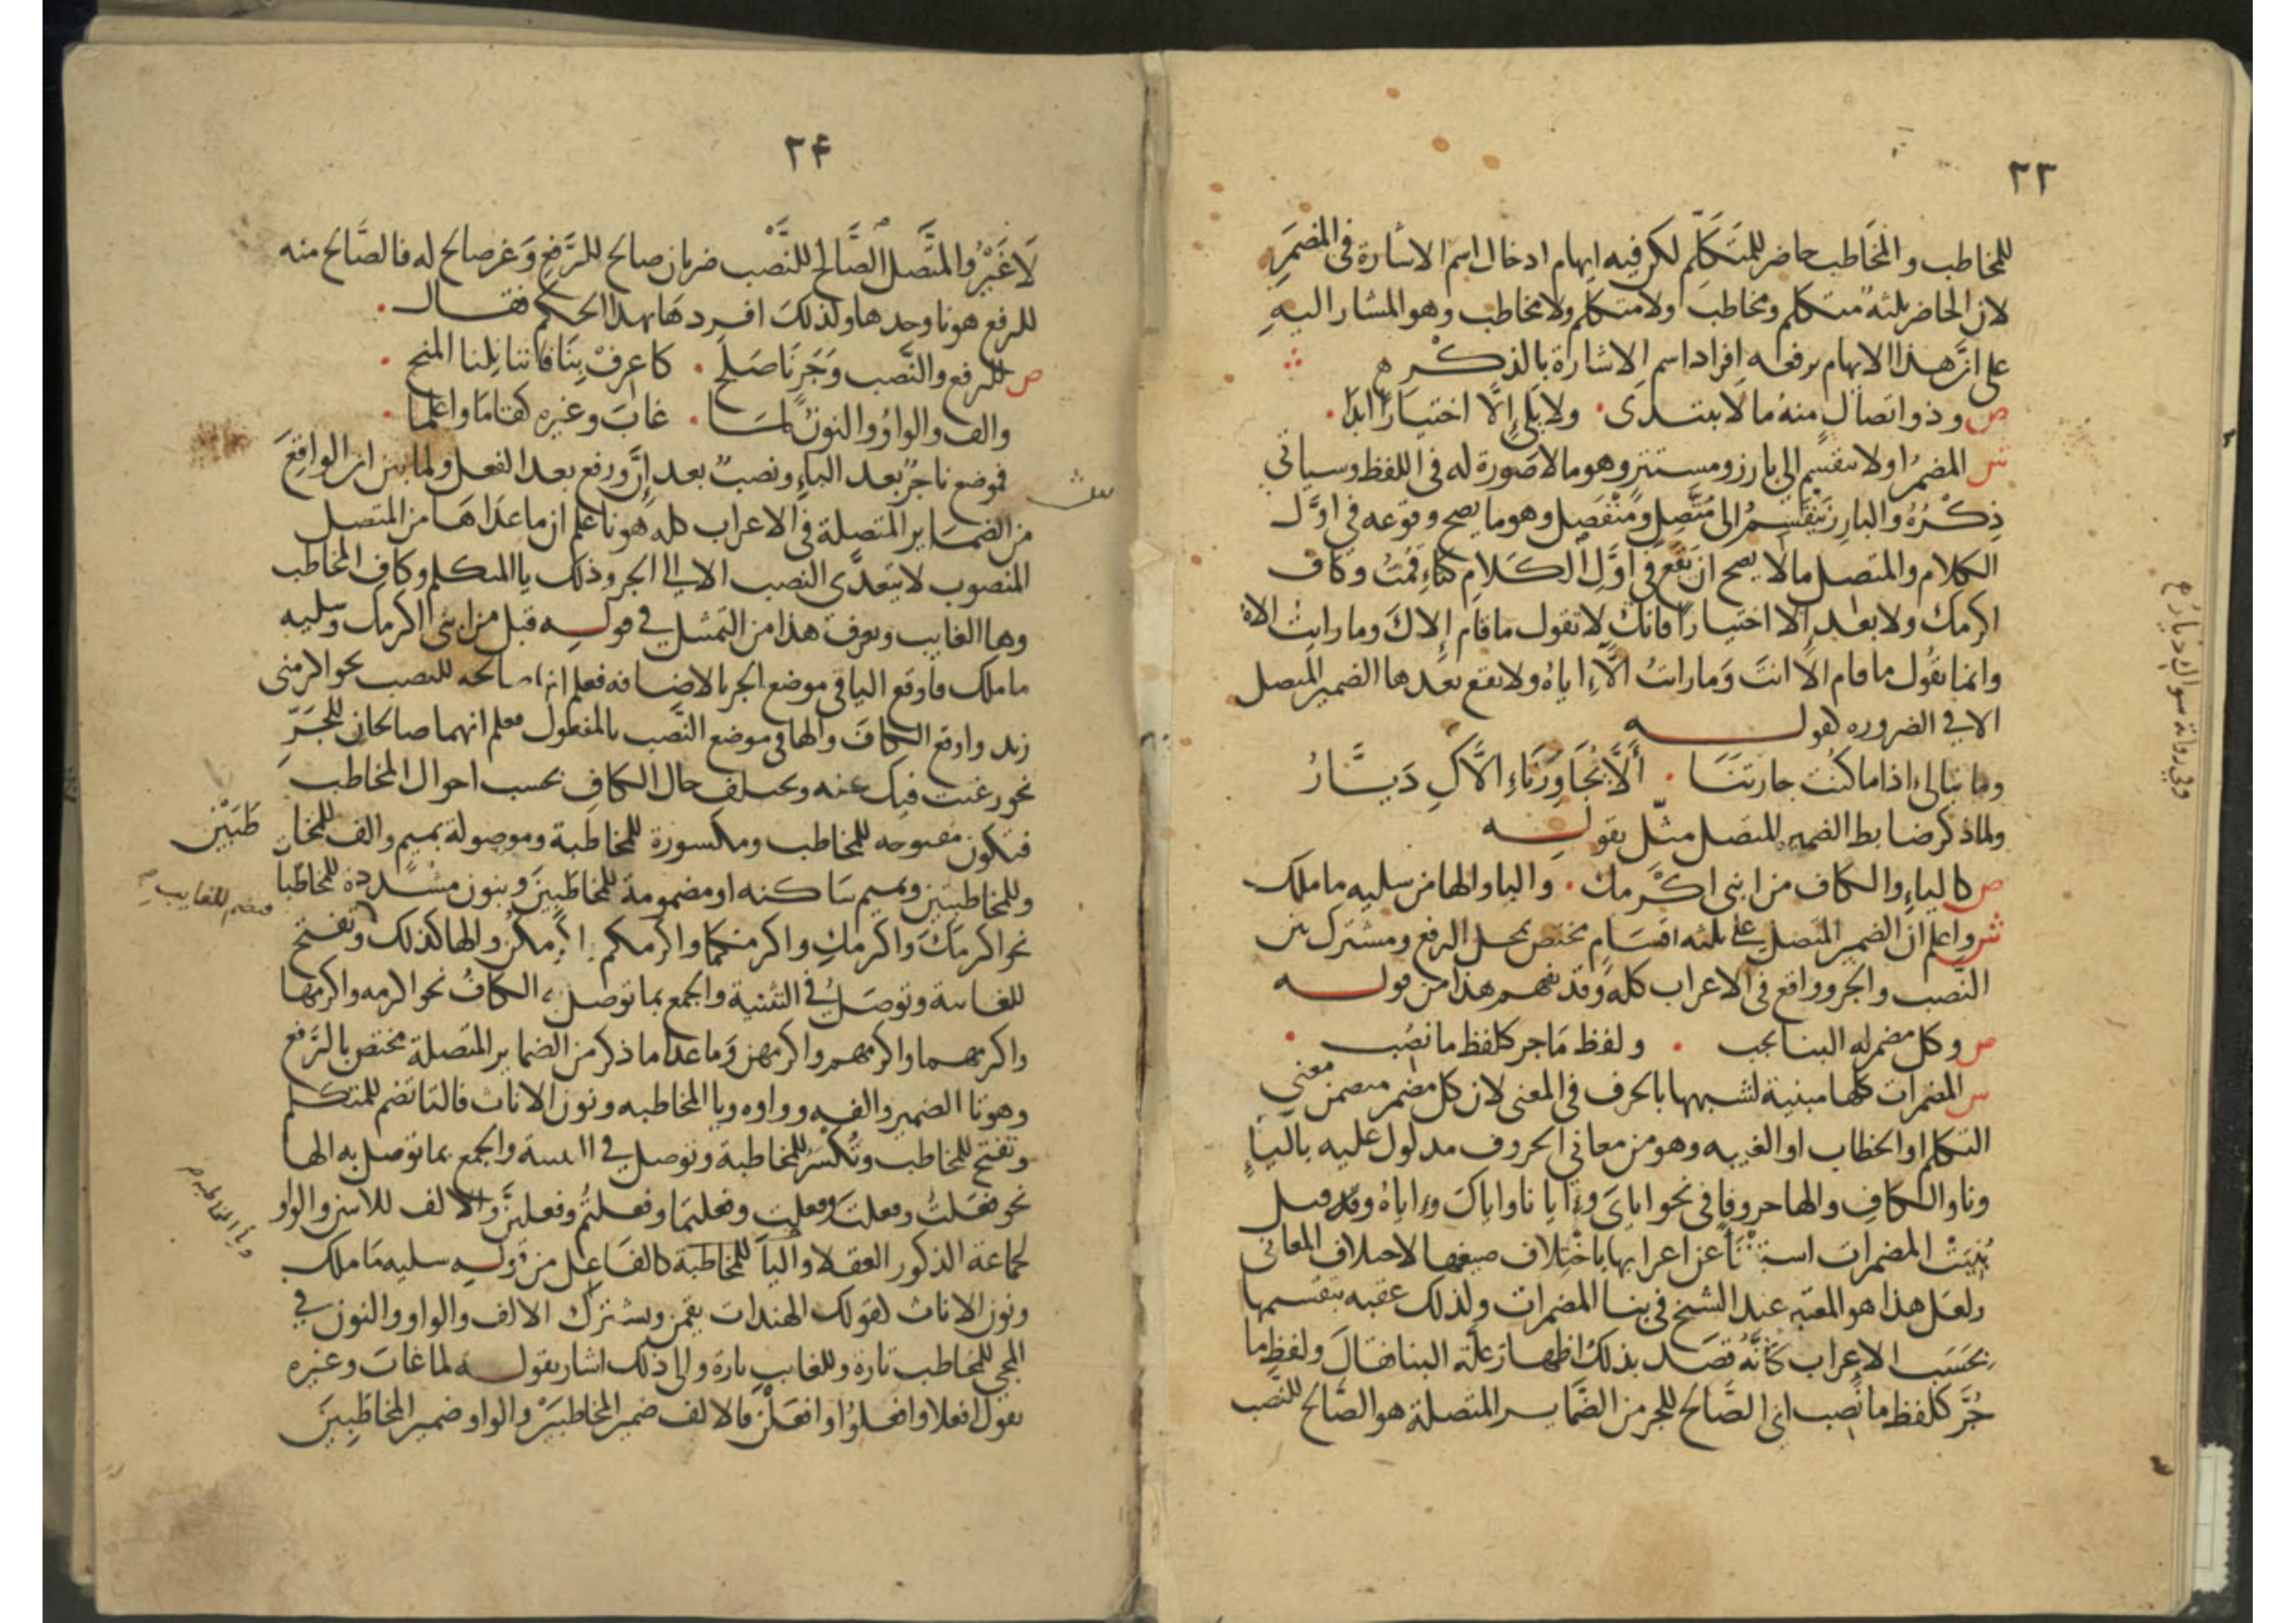 ٢٣
للمخاطب والمخَاطب حاضر للمتَكَلِّم لكن فيه ايهام ادخال اسم الاشارة فى المضمَرِ
لان الحاضر ثلثة متكلم ومخاطب ولا متكلم ولا مخاطب وهو المشار اليهِ
على انَّ هذا الايهام يرفعه افراد اسم الاشارة بالذكْر ه
ص وذو اتصالٍ منهُ ما لَا يبتدَى ٠ ولا يلى إلَّا اختيَارًا ابدَا ٠
ش المضمرُ اولا ينقسم الى بارز ومستتر وهو ما لا صَورة له فى اللفظ وسياتي
ذِكْرُهُ والبارِز يَنْقَسِمُ الى مُتَّصِلٍ ومُنْفَصِل وهو ما يصح وقوعه في اوَّل
الكلام والمتصل ما لا يصح ان يَقَع فِى أَوَّلِ الكَلامِ كتاءِ قمْتُ وكاف
اكرمك ولا بعد إلا اختيارًا فانك لا تقول ما قام إلاكَ وما رايت الاهُ
وانما تقُول ما قام الّا انتَ وَما رايتُ الَّا اياهُ ولا تقع بعدها الضمير المتصل
الا في الضروره كقولــه
وما نبالى اذا ما كنْت جارتنَا ٠ أَلَّا يُجَاوِرَنَاءِ الَّاكِ دَيَّارُ
ولما ذكر ضابط الضمير المتصل مثّل بقولــه
ص كالياءِ والكاف من ابنى اكْرمك ٠ واليا والها من سليه ما ملك
ش واعلم ان الضمير المتصل على ثلثه اقسَامٍ مختص بمحل الرفع ومشترك بين
النَّصب والجر وواقع فى الاعراب كله وقد يفهم هذا من قولــه
ص وكل مضمر له البنا يجب ٠ ولفظ مَا جر كلفظ ما نصُب ٠
ش المضمرات كلها مبنية لشبهها بالحرف فى المعنى لان كل مضمر متضمن معنى
التكلم او الخطاب او الغيبه وهو من معانى الحروف مدلول عليه باليَاءٍ
ونا والكافِ والها حروفًا فى نحو اياىَ وايانا واياكَ واياهُ وقد قيل
بُنِيَتْ المضمرات استغناءً عن اعرابها باختِلاف صيغها لاختلاف المعانى
ولعَل هذا هو المعتبر عند الشيخ فى بنا المضمرات ولذلك عقبه بتقسيمها
بحَسَب الاعراب كأنَّهُ قصَد بذلك اظهار عِلَّة البنا فقالَ ولفظِ ما
جُرَّ كلفظ ما نُصب اى الصَّالح للجر من الضَّماير المتصلة هو الصَّالح للنَّصب
وفي رواية سواك ديار م
٢٤
لَا غَيْرُ والمتَّصل الصَّالح للنَّصب ضربان صالح للرَّفعِ وَغير صالح له فالصَّالح منه
للرفع هو نا وحدها ولذلكَ افردهَا بهذا الحكم فقــال ٠
ص للرفع والنَّصب وَجَرٍ نَا صَلَح ٠ كاعرفْ بِنَا فاننا نِلنا المنح ٠
والف والواوُ والنونُ لمَا ٠ غابَ وغيره كقامَا واعلما ٠
ش
فموضع نا جرٌّ بعد الباءِ ونصبٌ بعد إنَّ ورفع بعد الفعل ولما بين ان الواقِعَ
من الضمَاير المتصلة فى الاعراب كله هو نا علم ان ما عدَاهَا من المتصل
المنصوب لا يتعدَّى النصب الا الى الجر وذلك يا المتكلم وكاف المخاطب
وها الغايب ويعرف هذا من التمثيل في قولــه قبل من ابنى اكرمك وسليه
ما ملك فاوقع اليا فى موضع الجر بالاضافه فعلم انها صالحه للنصب نحو اكرمنى
زيد واوقع الكافَ والها فى موضع النَّصب بالمفعول فعلم انهما صالحان للجَرّ
نحو رغبت فيك وعنه وتختلف حال الكافِ بحسب احوال المخاطب
فتكون مفتوحه للمخاطب ومكسورة للمخاطبة وموصولة بميم والف للمخاطَبَيْن
وللمخاطبتين وبميم سَاكنه او مضمومة للمخاطَبِينَ وبنون مشددة للمخاطبا
نحو اكرمكَ واكرمكِ واكرمكما واكرمكم اكرمكن والها كذلك وتفتح
فتضم للغايب م
للغايبة وتوصَل في التثنية والجمع بما توصل به الكافُ نحو اكرمه واكرمها
واكرمهما واكرمهم واكرمهن وَما عدا ما ذكر من الضماير المتصلة مختص بالرَّفع
وهو تا الضمير والفه وواوه ويا المخاطبه ونون الاناث فالتا تضم للمتكلم
وتفتح للمخاطب وتُكْسَرُ للمخاطبة وتوصل في التثنية والجمع بما توصل به الها
نحو فعَلتُ وفعلتَ وفعلتِ وفعلتمَا وفعلتُم وفعلتنَّ والالف للاثنين والواو
لجماعة الذكور العقلا واليا للمخاطبة كالفَاعل من قوله سليه مَا ملك
ونون الاناث كقولك الهندات يقمن ويشترك الالف والواو والنون في
المجى للمخاطب تارة وللغايب تارة والى ذلك اشار بقولــه لما غابَ وغيره
تقول افعلا وافعلوُا وافعَلْنَ فالالف ضمير المخاطبَيْن والواو ضمير المخاطَبِينَ